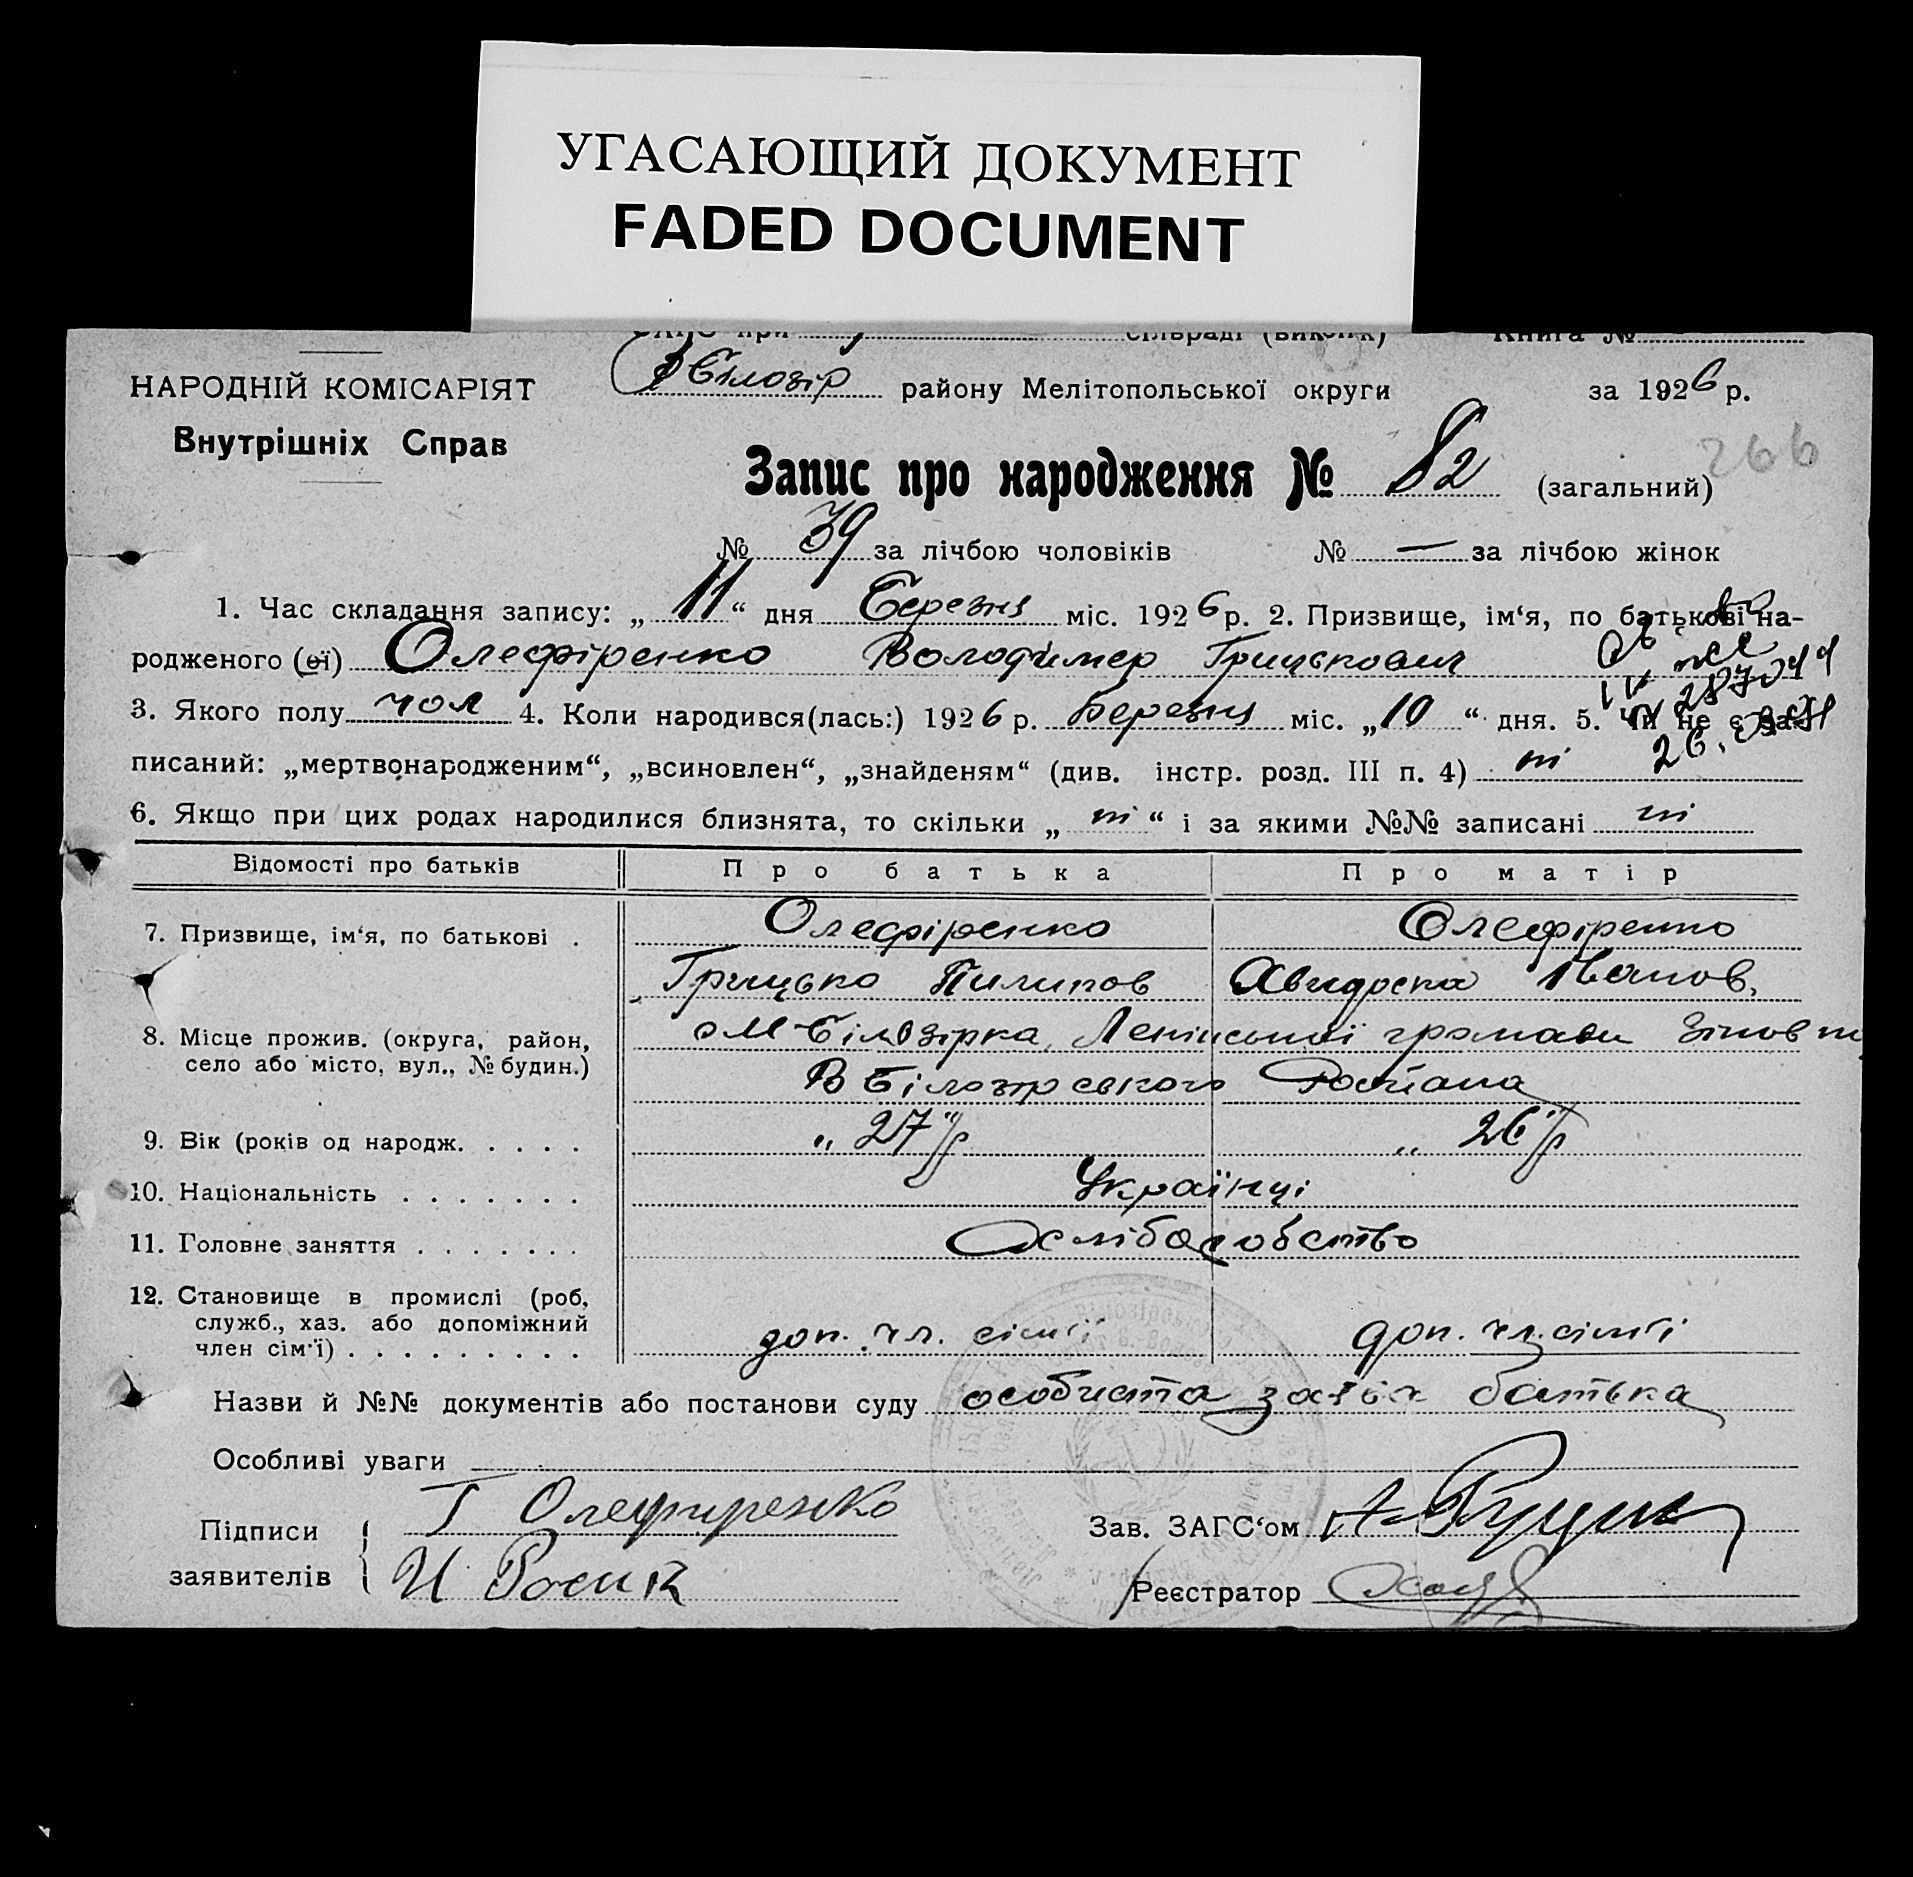 УГАСАЮЩИЙ ДОКУМЕНТ
FADED DOCUMENT
при сільраді Книга №
НАРОДНІЙ КОМІСАРІЯТ
Внутрішніх Справ
ВБілозір району Мелітопольської округи за 1926 р.
266
Запис про народження № 82 (загальний)
№ 39 за лічбою чоловіків № — за лічбою жінок
1. Час складання запису: „ 11 “ дня Березня міс. 1926 р. 2. Призвище, ім‘я, по батькові на-
родженого (ої) Олефіренко Володимер Грицькович
3. Якого полу чол 4. Коли народився(лась:) 1926 р. Березня міс. „ 10 “ дня. 5. Чи не є за-
писаний: „мертвонародженим“, „всиновлен“, „знайденям“ (див. інстр. розд. III п. 4) ні
6. Якщо при цих родах народилися близнята, то скільки „ ні “ і за якими №№ записані ні
Відомості про батьків Про батька Про матір
7. Призвище, ім‘я, по батькові . Олефіренко Олефіренко
Грицько Пилипов Явидоска Іванов,
8. Місце прожив. (округа, район, село або місто, вул., № будин.) М-Білозірка, Ленінської громади
В Білозірського Району
9. Вік (років од народж. . . . . „ 27 “ р „ 26 “ р
10. Національність . . . . . . . Українці
11. Головне заняття . . . . . . . Хліборобство
12. Становище в промислі (роб, служб., хаз. або допоміжний член сім‘ї) . . . . . . . . . доп. чл. сімї доп. чл. сімї
Назви й №№ документів або постанови суду особиста заява батька
Особливі уваги
Підписи заявителів Г Олефиренко
И Росик
Зав. ЗАГС‘ом
Реєстратор